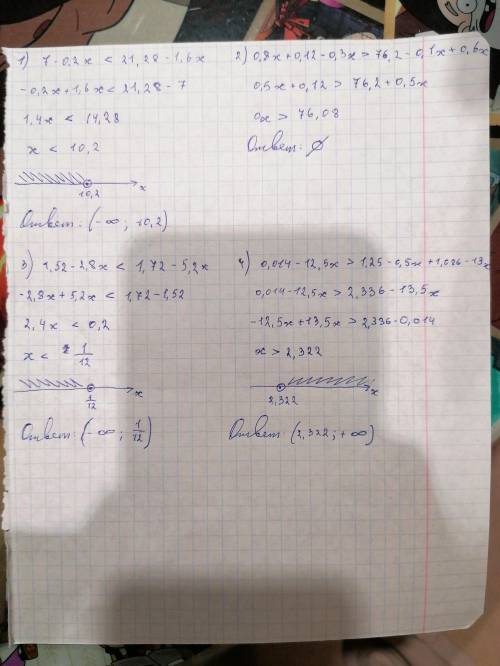 1) 7-0,2x < 21,28-1,6x
-0,2x+1,6x < 21,28-7
1,4x < 14,28
x < 10,2
x
10,2
Ответ: (-∞; 10,2)
2) 0,8x+0,12-0,3x > 76,2-0,1x+0,6x
0,5x+0,12 > 76,2+0,5x
0x > 76,08
Ответ: ∅
3) 1,52-2,8x < 1,72-5,2x
-2,8x+5,2x < 1,72-1,52
2,4x < 0,2
x < 1/12
x
1/12
Ответ: (-∞; 1/12)
4) 0,014-12,5x > 1,25-0,5x+1,086-13x
0,014-12,5x > 2,336-13,5x
-12,5x+13,5x > 2,336-0,014
x > 2,322
x
2,322
Ответ: (2,322; +∞)